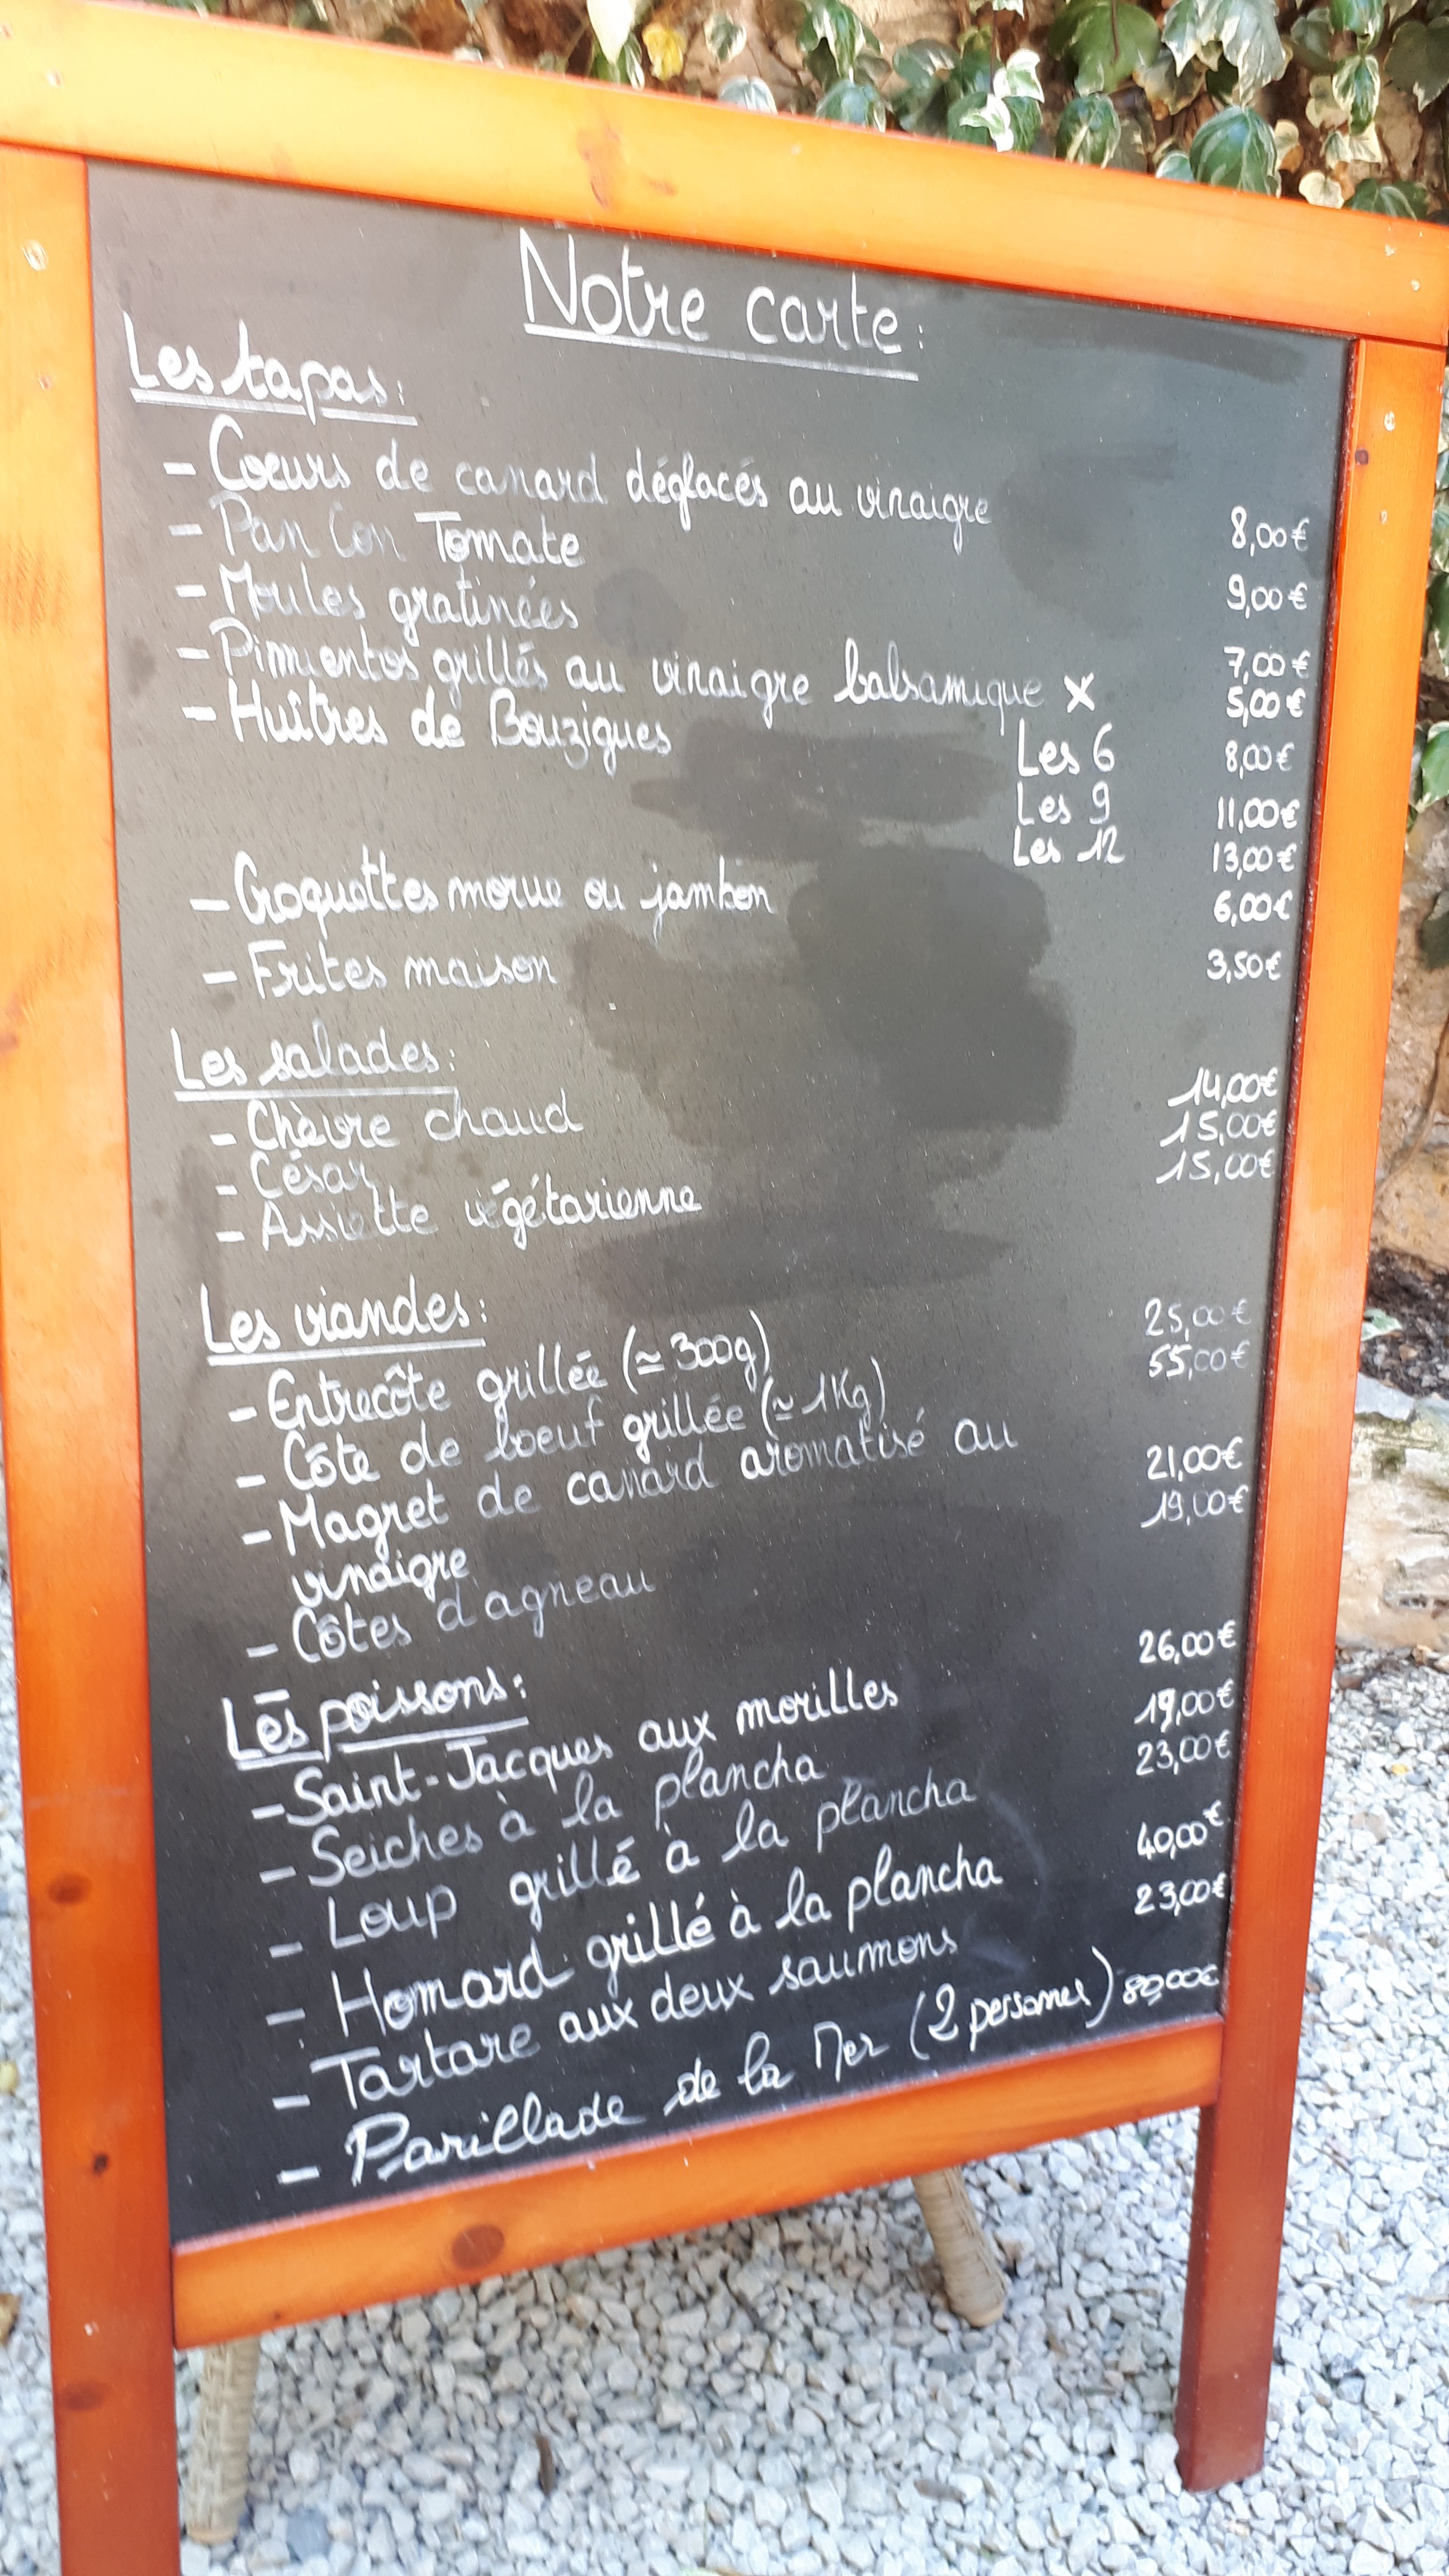 Notre carte:
Les tapas:
- Coeurs de canard déglacés au vinaigre 8,00€
- Pan Con Tomate 9,00€
- Moules gratinées 7,00€
- Pimientos grillés au vinaigre balsamique X 5,00€
- Huîtres de Bouzigues Les 6 8,00€
Les 9 11,00€
Les 12 13,00€
- Croquettes morue ou jambon 6,00€
- Frites maison 3,50€
Les salades:
- Chèvre chaud 14,00€
- César 15,00€
- Assiette végétarienne 15,00€
Les viandes:
- Entrecôte grillée (≃ 300g) 25,00€
- Côte de boeuf grillée (≃ 1Kg) 55,00€
- Magret de canard aromatisé au 21,00€
vinaigre
- Côtes d'agneau 19,00€
Les poissons:
- Saint-Jacques aux morilles 26,00€
- Seiches à la plancha 19,00€
- Loup grillé à la plancha 23,00€
- Homard grillé à la plancha 40,00€
- Tartare aux deux saumons 23,00€
- Parillade de la Mer (2 personnes) 80,00€